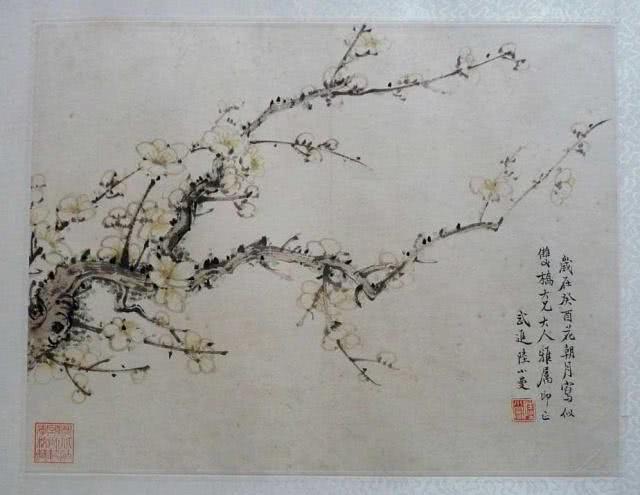 歲在癸酉花朝月寫似
雙橋大兄大人雅屬即正
武進陸小曼